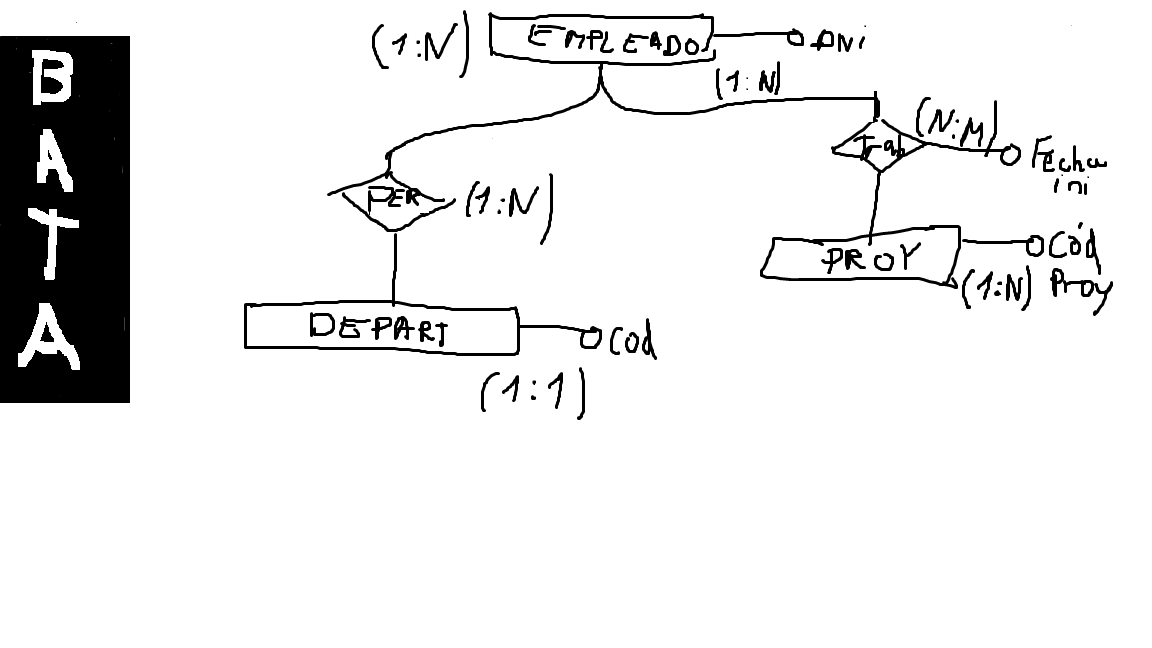 BATA
(1:N)
EMPLEADO
DNi
(1:N)
PER
(1:N)
Trab
(N:M)
Fecha
ini
PROY
Cód
Proy
(1:N)
DEPART
Cod
(1:1)